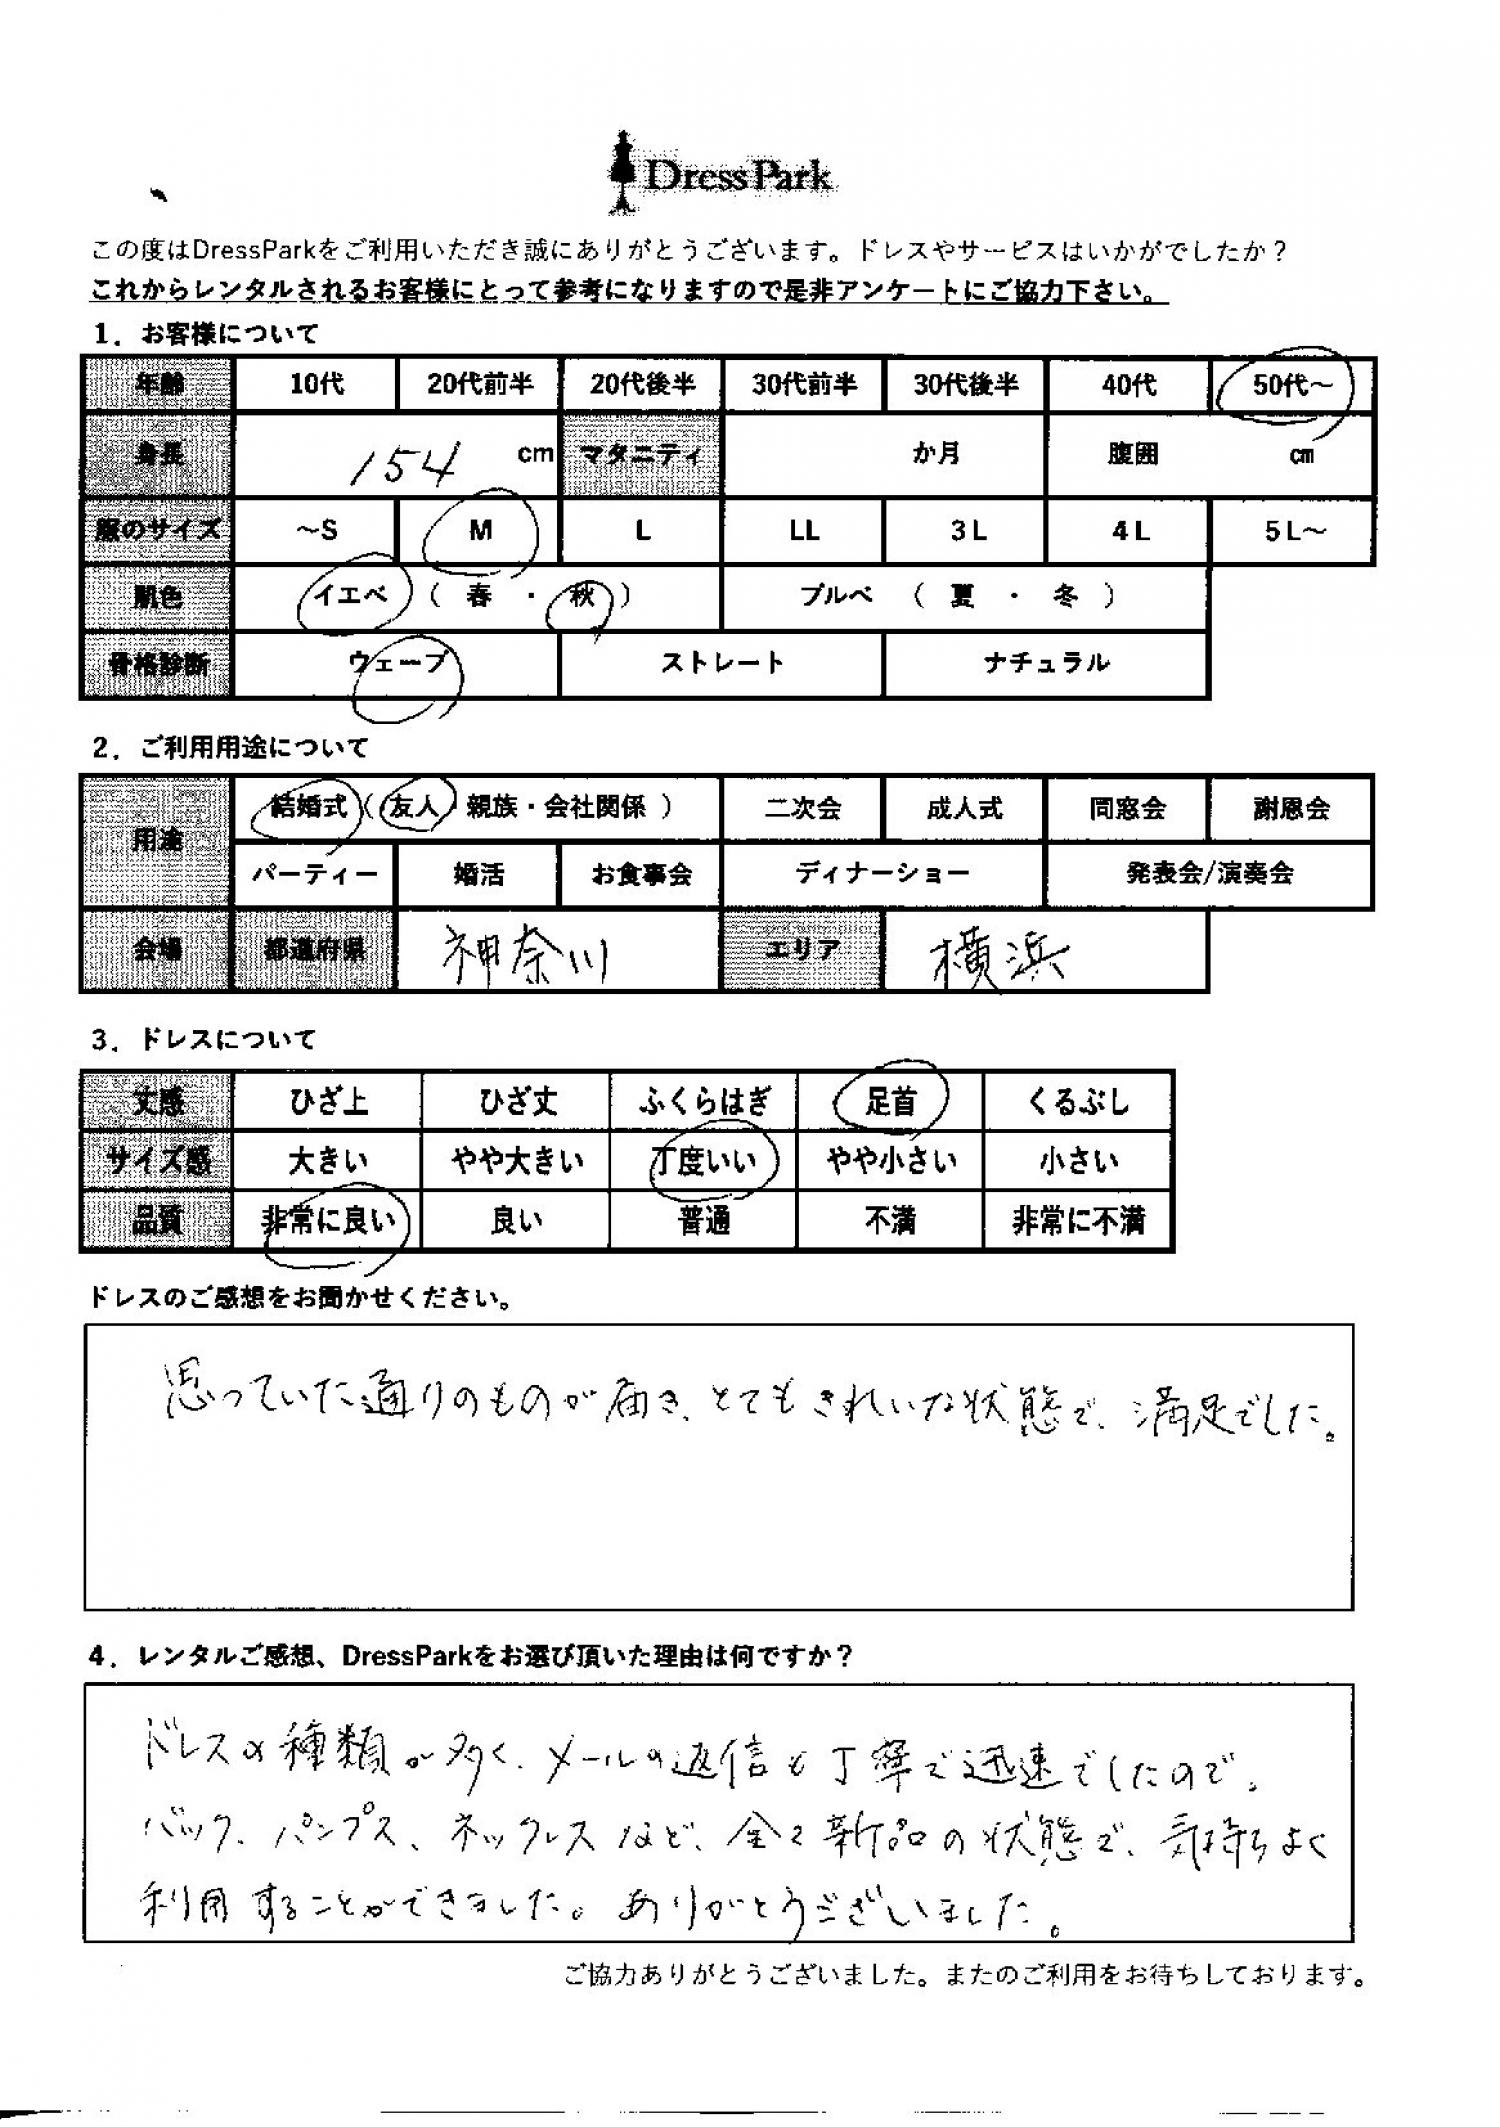 DressPark
この度はDressParkをご利用いただき誠にありがとうございます。ドレスやサービスはいかがでしたか？
これからレンタルされるお客様にとって参考になりますので是非アンケートにご協力下さい。
1．お客様について
年齢 10代 20代前半 20代後半 30代前半 30代後半 40代 50代～
身長 154 cm マタニティ か月 腹囲 cm
服のサイズ ～S M L LL 3L 4L 5L～
肌色 イエベ （ 春 ・ 秋 ） ブルベ （ 夏 ・ 冬 ）
骨格診断 ウェーブ ストレート ナチュラル
2．ご利用用途について
用途 結婚式（ 友人・親族・会社関係 ） 二次会 成人式 同窓会 謝恩会
パーティー 婚活 お食事会 ディナーショー 発表会/演奏会
会場 都道府県 神奈川 エリア 横浜
3．ドレスについて
丈感 ひざ上 ひざ丈 ふくらはぎ 足首 くるぶし
サイズ感 大きい やや大きい 丁度いい やや小さい 小さい
品質 非常に良い 良い 普通 不満 非常に不満
ドレスのご感想をお聞かせください。
思っていた通りのものが届き、とてもきれいな状態で、満足でした。
4．レンタルご感想、DressParkをお選び頂いた理由は何ですか？
ドレスの種類が多く、メールの返信も丁寧で迅速でしたので。
バック、パンプス、ネックレスなど、全て新品の状態で、気持ちよく
利用することができました。ありがとうございました。
ご協力ありがとうございました。またのご利用をお待ちしております。